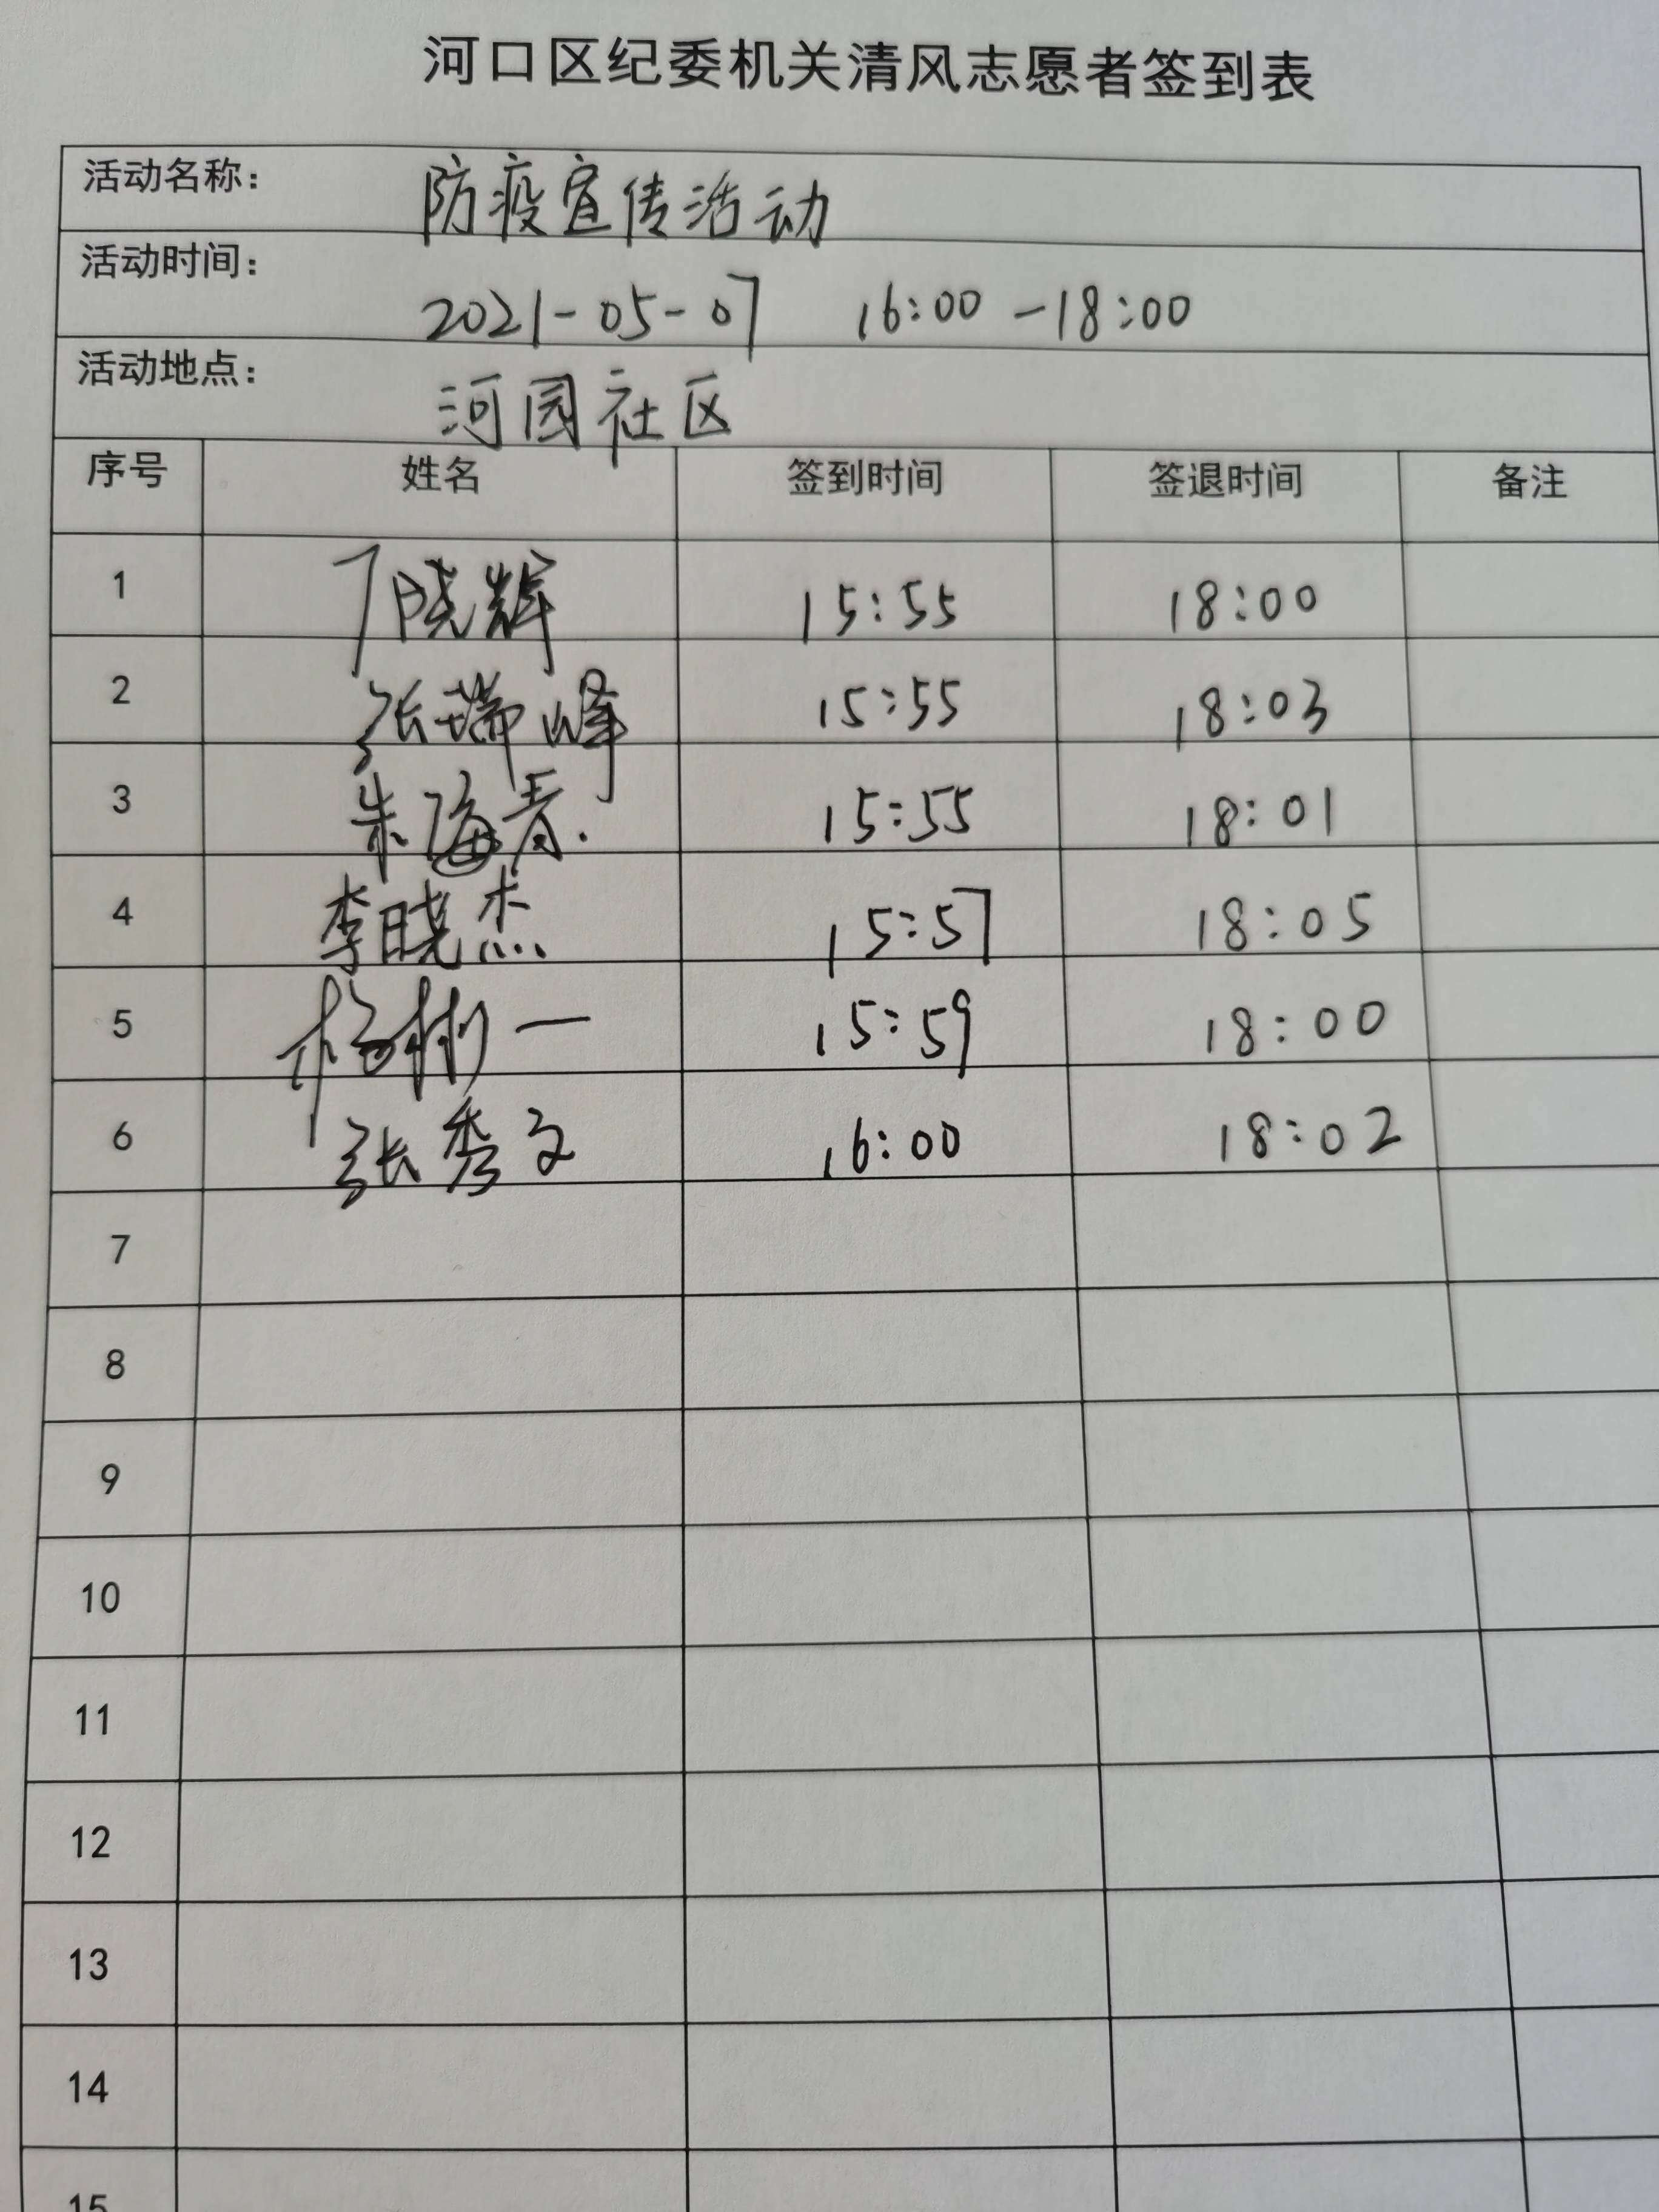 河口区纪委机关清风志愿者签到表
活动名称： 防疫宣传活动
活动时间： 2021-05-07 16:00-18:00
活动地点： 河园社区
序号 姓名 签到时间 签退时间 备注
1 丁晓辉 15:55 18:00
2 张瑞峰 15:55 18:03
3 朱海青 15:55 18:01
4 李晓杰 15:57 18:05
5 杨彬一 15:59 18:00
6 张秀文 16:00 18:02
7
8
9
10
11
12
13
14
15